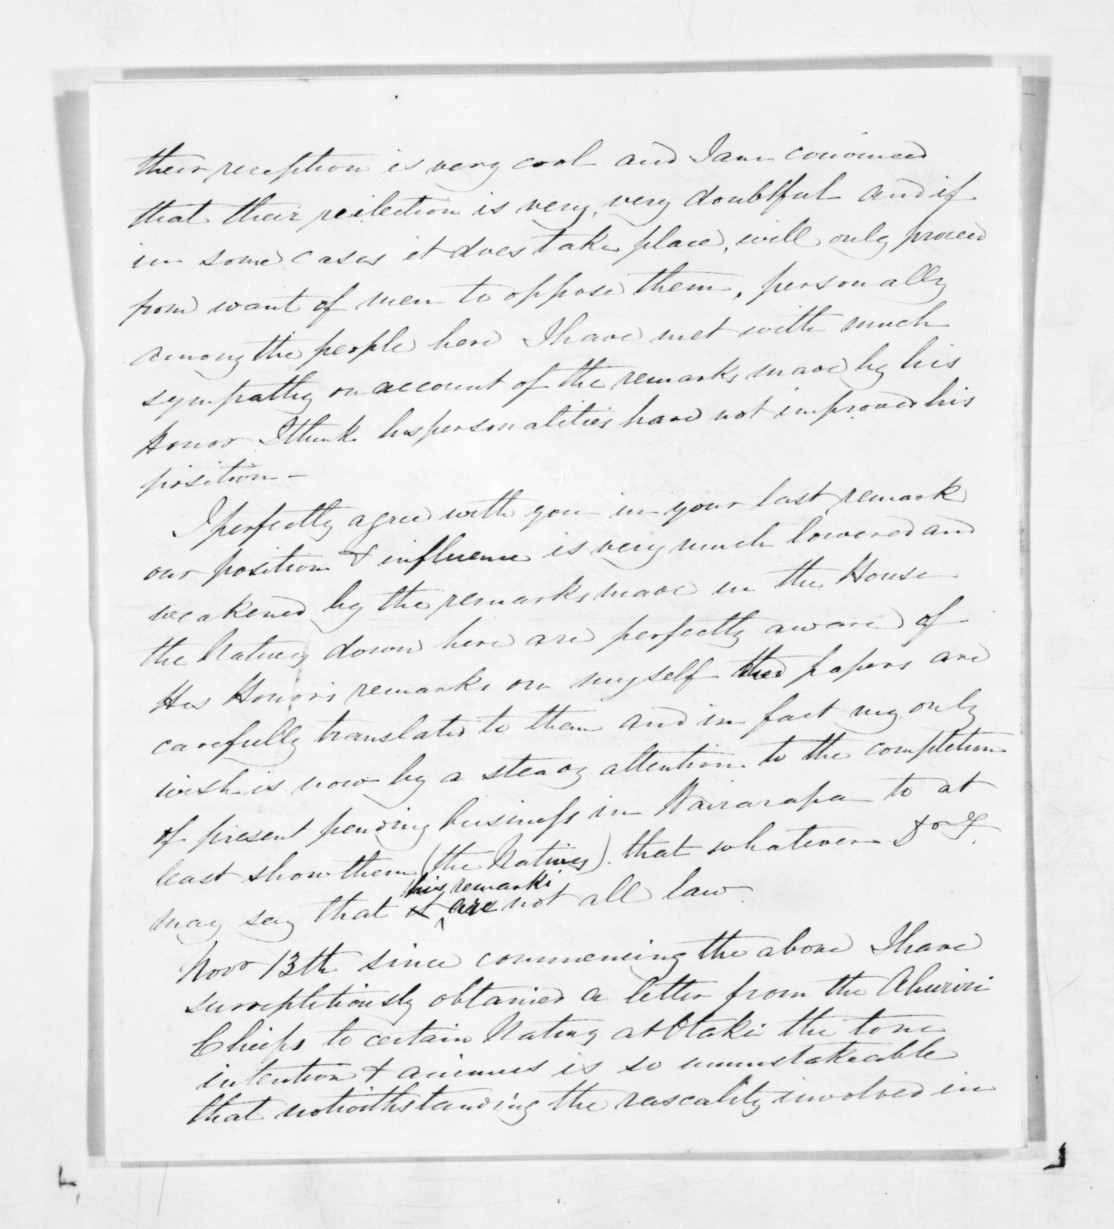 their reception is very cool and I am convinced
that their reelection is very, very doubtful and if
in some cases it does take place, will only proceed
from want of men to oppose them, personally
among the people here I have met with much
sympathy on account of the remarks made by his
Honor I think his personalities have not improved his
position —
I perfectly agree with you in your last remark
our position & influence is very much lowered and
weakened by the remarks made in the House
the Natives down here are perfectly aware of
His Honor's remarks on myself the papers are
carefully translated to them and in fact my only
wish is now by a steady attention to the completion
of present pending business in Wairarapa to at
least show them (the Natives) that whatever
his remarks
may say that it are not all law.
Novr 13th since commencing the above I have
surreptitiously obtained a letter from the Ahuriri
Chiefs to certain Natives at Otaki the tone
intention & animus is so unmistakeable
that notwithstanding the rascality involved in